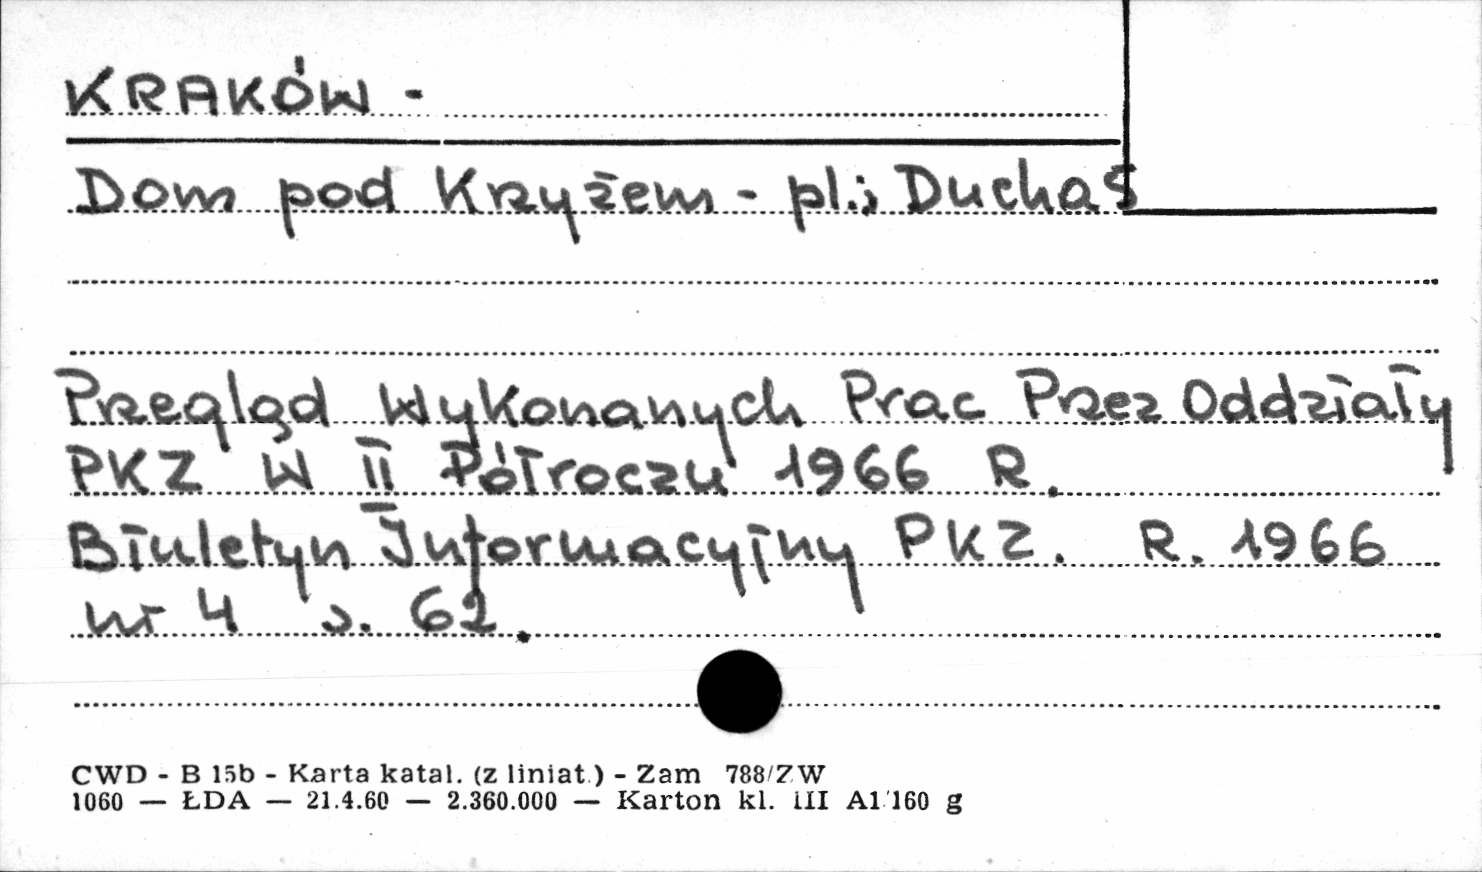 KRAKÓW -
Dom pod Krzyżem - pl. Ducha Ś
Przegląd Wykonanych Prac Przez Oddziały
PKZ W II Półroczu 1966 R.
Biuletyn Informacyjny PKZ. R. 1966
nr 4 s. 62.
CWD - B 15b - Karta katal. (z liniat.) - Zam 788/ZW
1060 — ŁDA — 21.4.60 — 2.360.000 — Karton kl. III A1/160 g